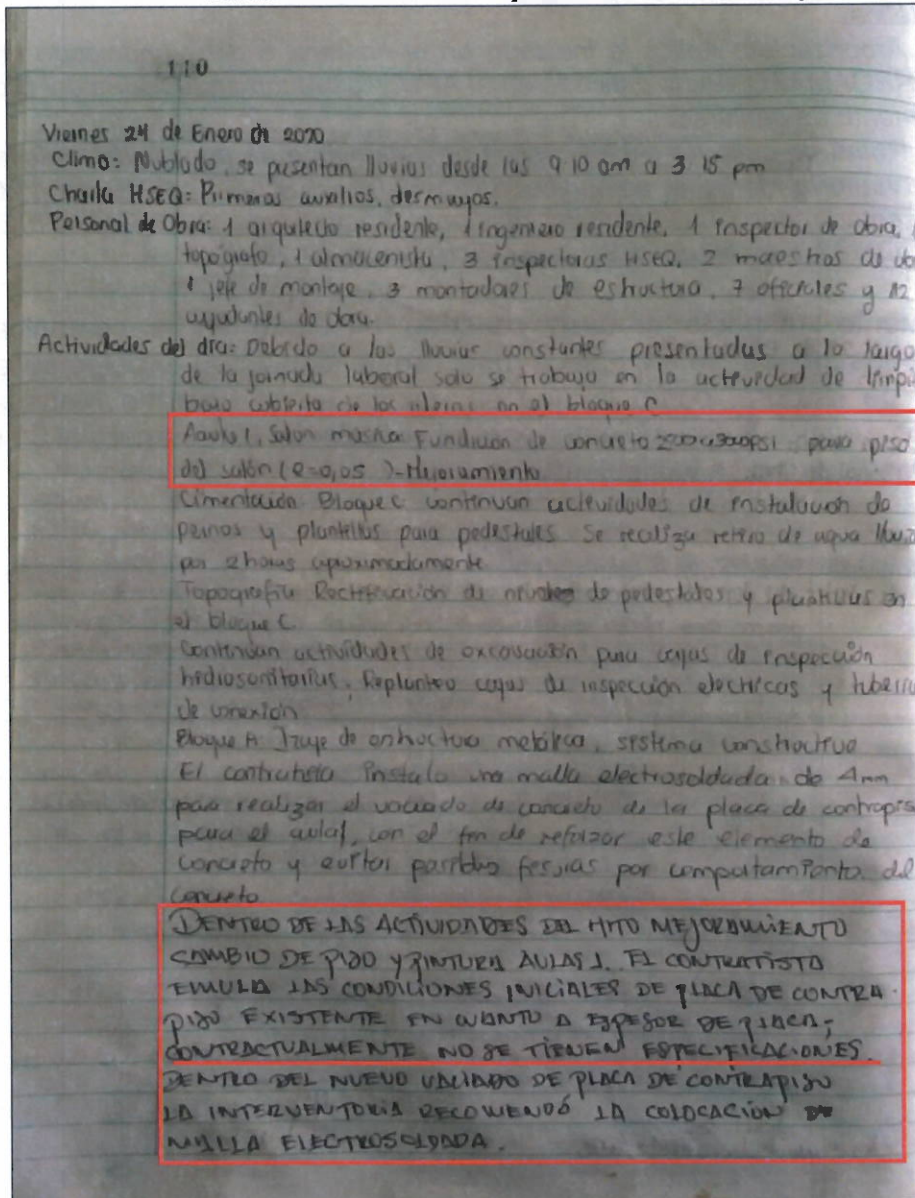 110
Viernes 24 de Enero de 2020
Clima: Nublado, se presentan lluvias desde las 9 10 am a 3 15 pm
Charla HSEQ: Primeros auxilios, desmayos.
Personal de Obra: 1 arquitecto residente, 1 ingeniero residente, 1 inspector de obra,
topógrafo, 1 almacenista, 3 inspectoras HSEQ, 2 maestros de
1 jefe de montaje, 3 montadores de estructura, 7 oficiales y 12
ayudantes de obra.
Actividades del dia: Debido a las lluvias constantes presentadas a lo largo
de la jornada laboral solo se trabajo en la actividad de
bajo cubierta de las en el bloque C
Aula 1, Salon musica Fundicion de concreto para piso
del salón (e=0,05 )-Mejoramiento
Cimentación Bloque C continuan actividades de instalacion de
y plantillas para pedestales Se realiza retiro de agua
por 2 horas aproximadamente
Topografia Rectificación de niveles de pedestales y plantillas en
el bloque C
Continuan actividades de excavación para cajas de inspección
hidrosanitarias, Replanteo cajas de inspección electricas y
de conexión
Bloque A Izaje de estructura metálica, sistema constructivo
El contratista instala una malla electrosoldada de 4mm
para realizar el vaciado de concreto de la placa de
para el aula1, con el fin de reforzar este elemento de
concreto y evitar posibles fisuras por comportamiento del
concreto
DENTRO DE LAS ACTIVIDADES DEL HITO MEJORAMIENTO
CAMBIO DE PISO Y PINTURA AULAS 1. EL CONTRATISTA
EMULA LAS CONDICIONES INICIALES DE PLACA DE CONTRA
PISO EXISTENTE EN CUANTO A ESPESOR DE PLACA;
CONTRACTUALMENTE NO SE TIENEN ESPECIFICACIONES.
DENTRO DEL NUEVO VACIADO DE PLACA DE CONTRAPISO
LA INTERVENTORIA RECOMENDÓ LA COLOCACIÓN DE
MALLA ELECTROSOLDADA.